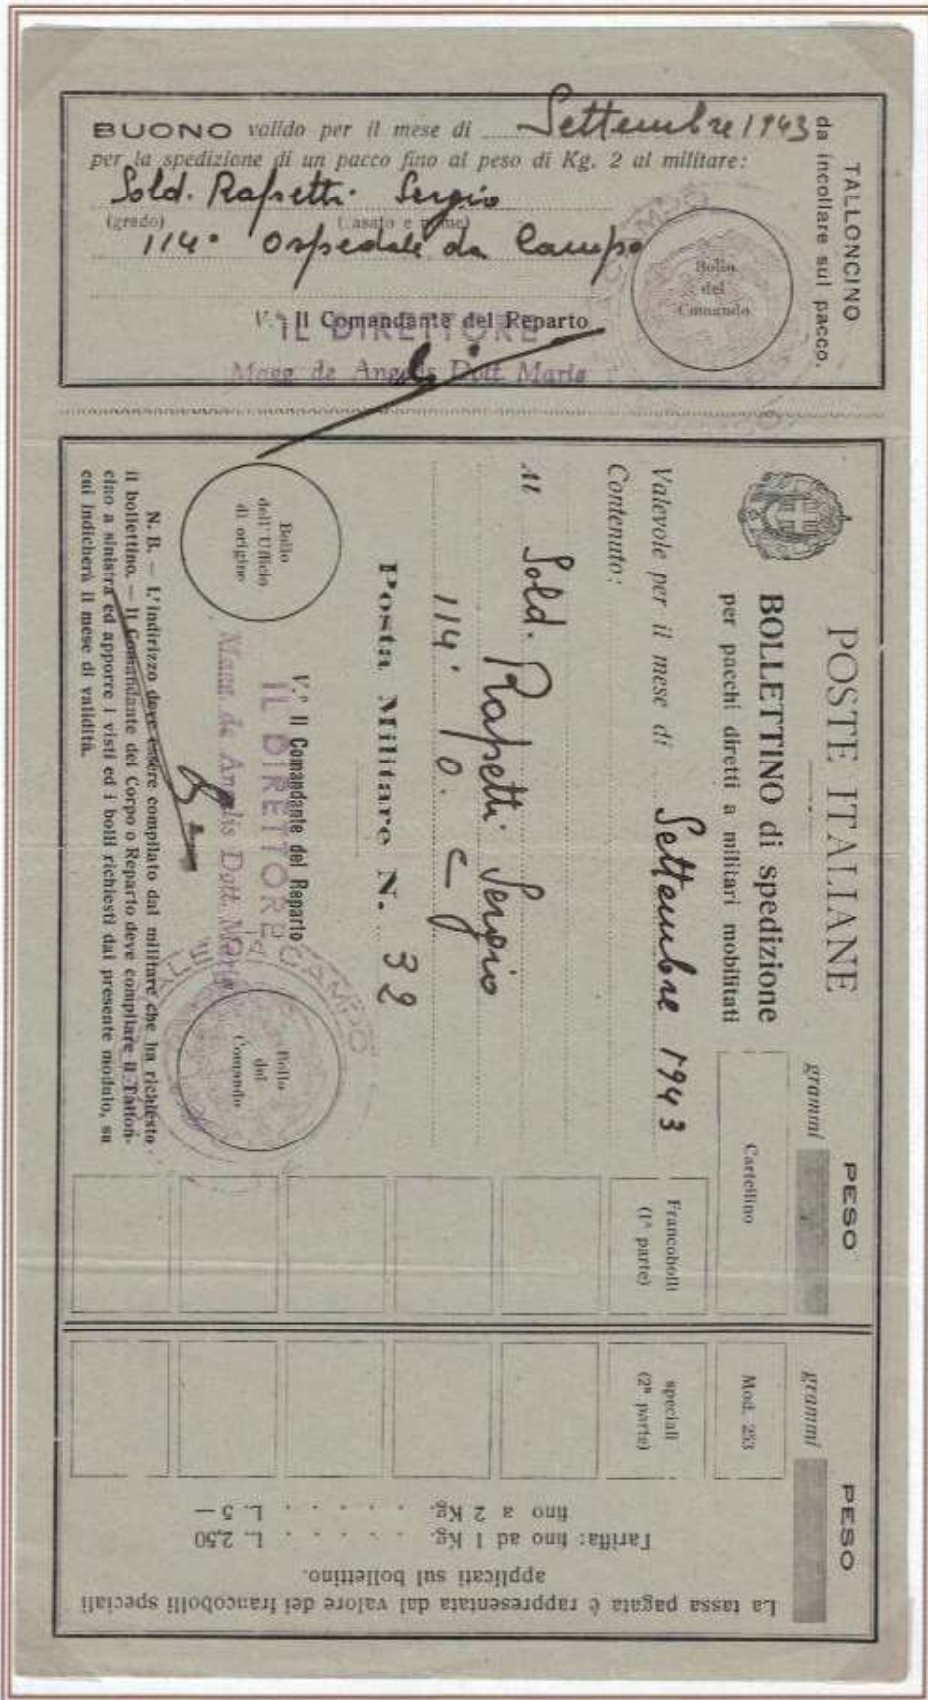 BUONO valido per il mese di Settembre 1943
per la spedizione di un pacco fino al peso di Kg. 2 al militare:
Sold. Rapetti Sergio
(grado) (casato e nome)
114° Ospedale da Campo
V.° Il Comandante del Reparto
IL DIRETTORE
Magg. de Angelis Dott. Mario
Bollo
del
Comando
TALLONCINO
da incollare sul pacco.
POSTE ITALIANE
BOLLETTINO di spedizione
per pacchi diretti a militari mobilitati
Valevole per il mese di Settembre 1943
Contenuto:
Al Sold. Rapetti Sergio
114° O. C
Posta Militare N. 32
V.° Il Comandante del Reparto
IL DIRETTORE
Magg. de Angelis Dott. Mario
Bollo
dell'Ufficio
di origine
Bollo
del
Comando
CAMPO
N. B. — L'indirizzo deve essere compilato dal militare che ha richiesto
il bollettino. — Il Comandante del Corpo o Reparto deve compilare il Tallon-
cino a sinistra ed apporre i visti ed i bolli richiesti dal presente modulo, su
cui indicherà il mese di validità.
PESO
grammi
Cartellino
Francobolli
(1ª parte)
PESO
grammi
Mod. 253
speciali
(2ª parte)
La tassa pagata è rappresentata dal valore dei francobolli speciali
applicati sul bollettino.
Tariffa: fino ad 1 Kg. . . . . . L. 2,50
fino a 2 Kg. . . . . . L. 5 —